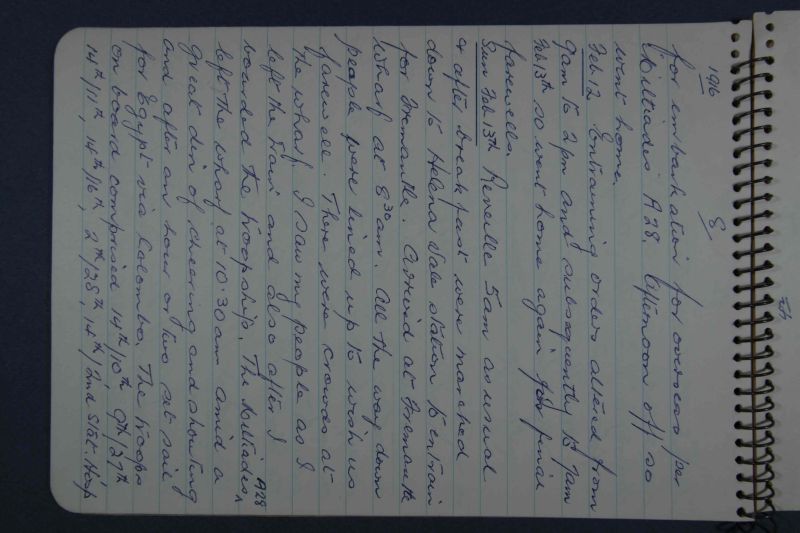 1916
8
for embarkation for overseas per
Miltiades A28. Afternoon off so
went home.
Feb. 12 Entraining orders altered from
9am to 2pm and subsequently to 7am
Feb 13th so went home again for final
farewells.
Sun Feb. 13th Reveille 5am as usual
& after breakfast were marched
down to Helena Vale station to entrain
for Fremantle. Arrived at Fremantle
Wharf at 8 30 am. All the way down
people were lined up to wish us
farewell. There were crowds at
the wharf. I saw my people as I
left the train and also after I
boarded the troopship. The Miltiades A28
left the wharf at 10.30am amid a
great din of cheering and shouting
and after an hour or two set sail
for Egypt via Colombo. The troops
on board comprised 14th/10th 9th/27th
14th/11th, 14th/16th 2nd/28th, 14th/ 2nd Stat. Hosp
Feb